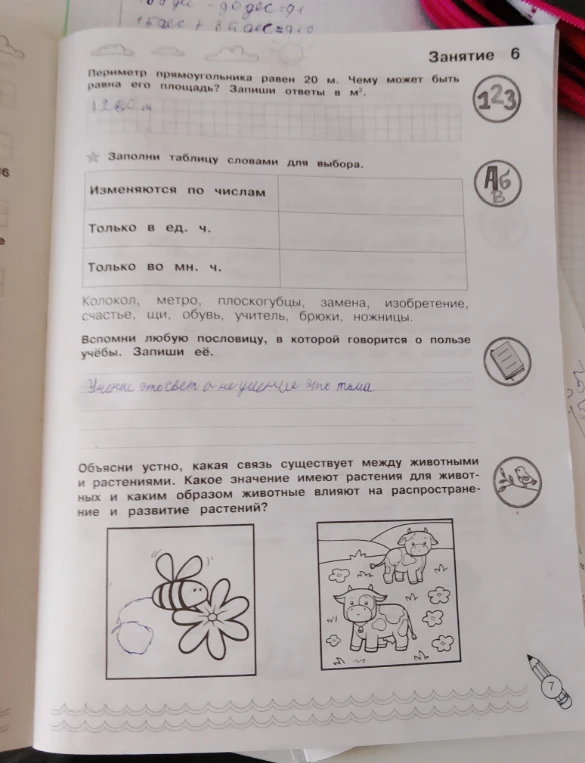 Занятие 6
Периметр прямоугольника равен 20 м. Чему может быть
равна его площадь? Запиши ответы в м².
123
Заполни таблицу словами для выбора.
Изменяются по числам
Только в ед. ч.
Только во мн. ч.
АбВ
Колокол, метро, плоскогубцы, замена, изобретение,
счастье, щи, обувь, учитель, брюки, ножницы.
Вспомни любую пословицу, в которой говорится о пользе
учёбы. Запиши её.
Учение это свет а не учение это тьма
Объясни устно, какая связь существует между животными
и растениями. Какое значение имеют растения для живот-
ных и каким образом животные влияют на распростране-
ние и развитие растений?
7